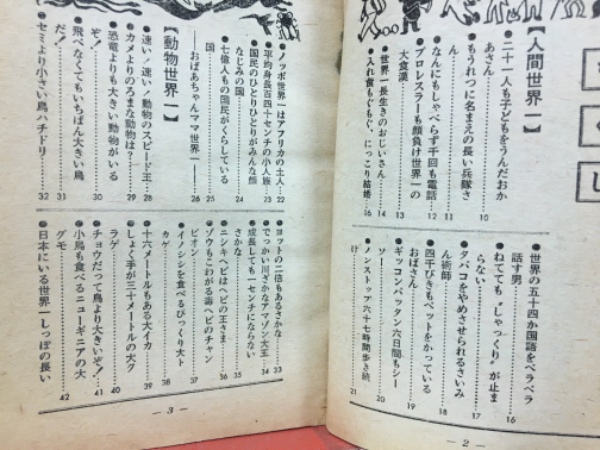 もくじ
【人間世界一】
●二十一人も子どもをうんだおか
あさん 10
●もうれつに名まえの長い兵隊さ
ん 11
●なんにもしゃべらず千回も電話 12
●プロレスラーも顔負け世界一の
大食漢 13
●世界一長生きのおじいさん 14
●入れ歯もぐもぐ、にっこり結婚 16
●世界の五十四か国語をペラペラ
話す男 16
●ねてても〝しゃっくり〟が止ま
らない 17
●タバコをやめさせられるさいみ
ん術師 18
●四千びきもペットをかっている
おばさん 19
●ギッコンバッタン六日間もシー
ソー 20
●ノンストップ六十七時間歩き続
け 21
－2－
●ノッポ世界一はアフリカの土人 22
●平均身長百四十センチの小人族 23
●国民のひとりひとりがみんな顔
なじみの国 24
●七億人もの国民がくらしている
国 25
――おばあちゃんママ世界一―― 26
【動物世界一】
●速い！速い！動物のスピード王 28
●カメよりのろまな動物は？ 29
●恐竜よりも大きい動物がいる
ぞ！ 30
●飛べなくてもいちばん大きい鳥
だ！ 31
●セミより小さい鳥ハチドリ 32
●ヨットの二倍もあるさかな 33
●でっかい川ざかなアマゾン大王 34
●成長しても一センチにならない
さかな 35
●ニシキヘビはヘビの王さま 36
●ゾウもこわがる毒ヘビのチャン
ピオン 37
●イノシシを食べるびっくり大ト
カゲ 38
●十六メートルもある大イカ 39
●しょく手が三十メートルの大ク
ラゲ 40
●チョウだって鳥より大きいぞ！ 41
●小鳥も食べるニューギニアの大
グモ 42
●日本にいる世界一しっぽの長い
－3－